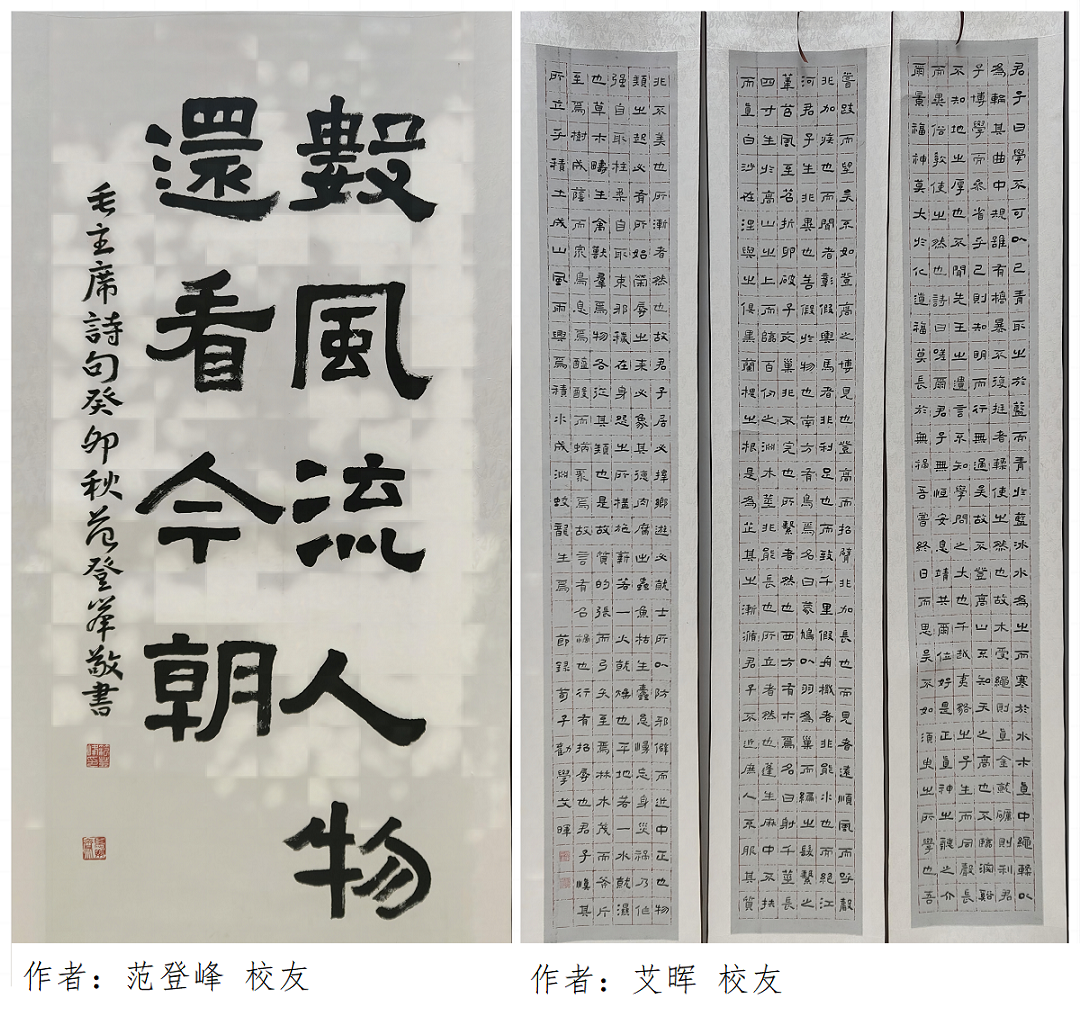 數風流人物
還看今朝
毛主席詩句癸卯秋范登峯敬書
作者：范登峰 校友
君子曰學不可以已青取之於藍而青於藍冰水為之而寒於水木直中繩輮以
為輪其曲中規雖有槁暴不復挺者輮使之然也故木受繩則直金就礪則利君
子博學而參省乎己則知明而行無過矣故不登高山不知天之高也不臨深谿
不知地之厚也不聞先王之遺言不知學問之大也干越夷貉之子生而同聲長
而異俗教使之然也詩曰嗟爾君子無恒安息靖共爾位好是正直神之聽之介
爾景福神莫大於化道福莫長於無禍吾嘗終日而思矣不如須臾之所學也吾
嘗跂而望矣不如登高之博見也登高而招臂非加長也而見者遠順風而呼聲
非加疾也而聞者彰假輿馬者非利足也而致千里假舟檝者非能水也而絕江
河君子生非異也善假於物也南方有鳥焉名曰蒙鳩以羽為巢而編之髮繫之
葦苕風至苕折卵破子死巢非不完也所繫者然也西方有木焉名曰射干莖長
四寸生於高山之上而臨百仞之淵木莖非能長也所立者然也蓬生麻中不扶
而直白沙在涅與之俱黑蘭槐之根是為芷其之漸滫君子不近庶人不服其質
非不美也所漸者然也故君子居必擇鄉遊必就士所以防邪僻而近中正也物
類之起必有所始榮辱之來必象其德肉腐出蟲魚枯生蠹怠慢忘身災禍乃作
强自取柱柔自取束邪穢在身怨之所構施薪若一火就燥也平地若一水就濕
也草木疇生禽獸羣焉物各從其類也是故質的張而弓矢至焉林木茂而斧斤
至焉樹成蔭而眾鳥息焉醯酸而蜹聚焉故言有召禍也行有招辱也君子慎其
所立乎積土成山風雨興焉積水成淵蛟龍生焉 節錄荀子勸學艾暉
作者：艾晖 校友